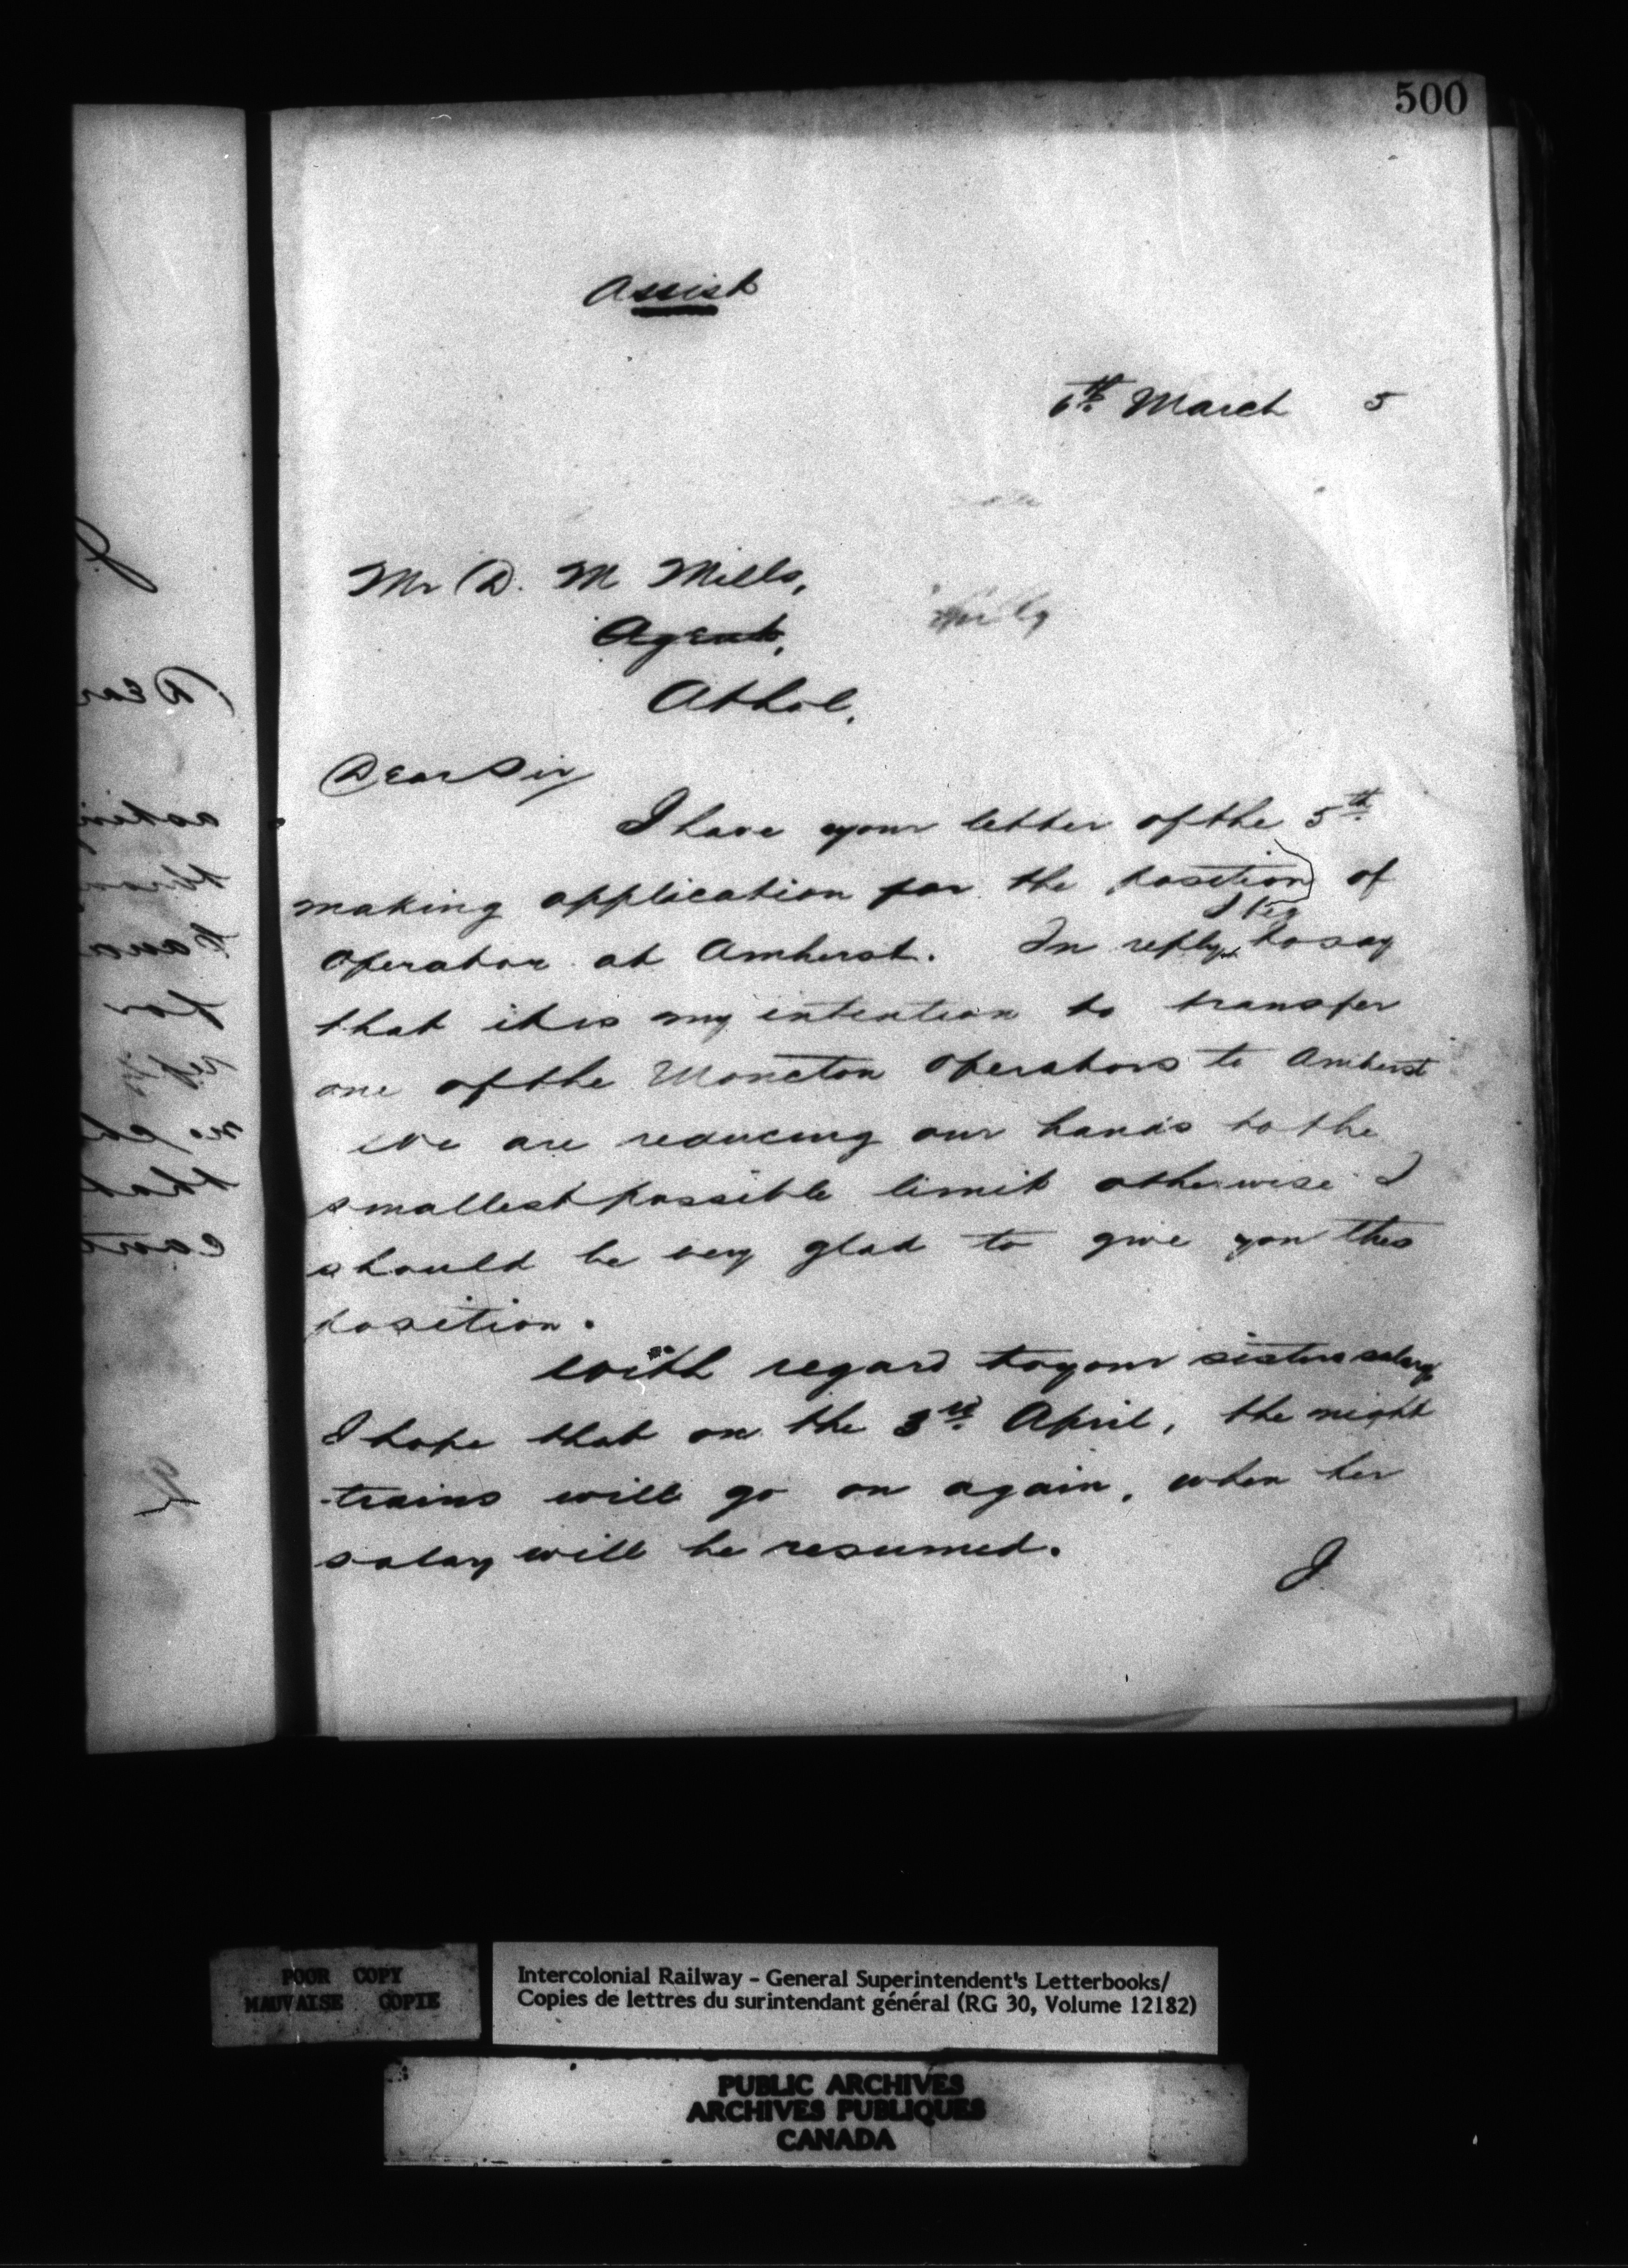 500
Assist
6th March 5
Mr D. M Mills,
Agent,
Athol.
Dear Sir
I have your letter of the 5th
making application for the position of
Operator at Amherst. In reply I beg to say
that it is my intention to transfer
one of the Moncton Operators to Amherst
We are reducing our hands to the
smallest possible limit otherwise I
should be very glad to give you this
position.
With regard to your sisters salary
I hope that on the 3rd April, the night
trains will go on again, when her
salary will be resumed.
J
POOR COPY
MAUVAISE COPIE
Intercolonial Railway - General Superintendent's Letterbooks/
Copies de lettres du surintendant général (RG 30, Volume 12182)
PUBLIC ARCHIVES
ARCHIVES PUBLIQUES
CANADA